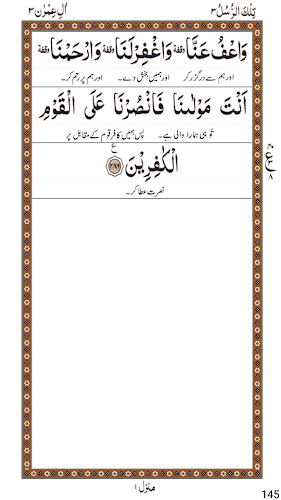 تِلْكَ الرُّسُلُ ٣ اٰلِ عِمْرٰن ٣
وَاعْفُ عَنَّا وقفة وَاغْفِرْ لَنَا وقفة وَارْحَمْنَا وقفة
اور ہم سے درگزر کر اور ہمیں بخش دے۔ اور ہم پر رحم کر۔
اَنْتَ مَوْلٰىنَا فَانْصُرْنَا عَلَى الْقَوْمِ
تُو ہی ہمارا والی ہے۔ پس ہمیں کافر قوم کے مقابل پر
الْكٰفِرِيْنَ ﴿۲۸۷﴾ ع
نصرت عطا کر۔
ع ٨
منزل ١
145